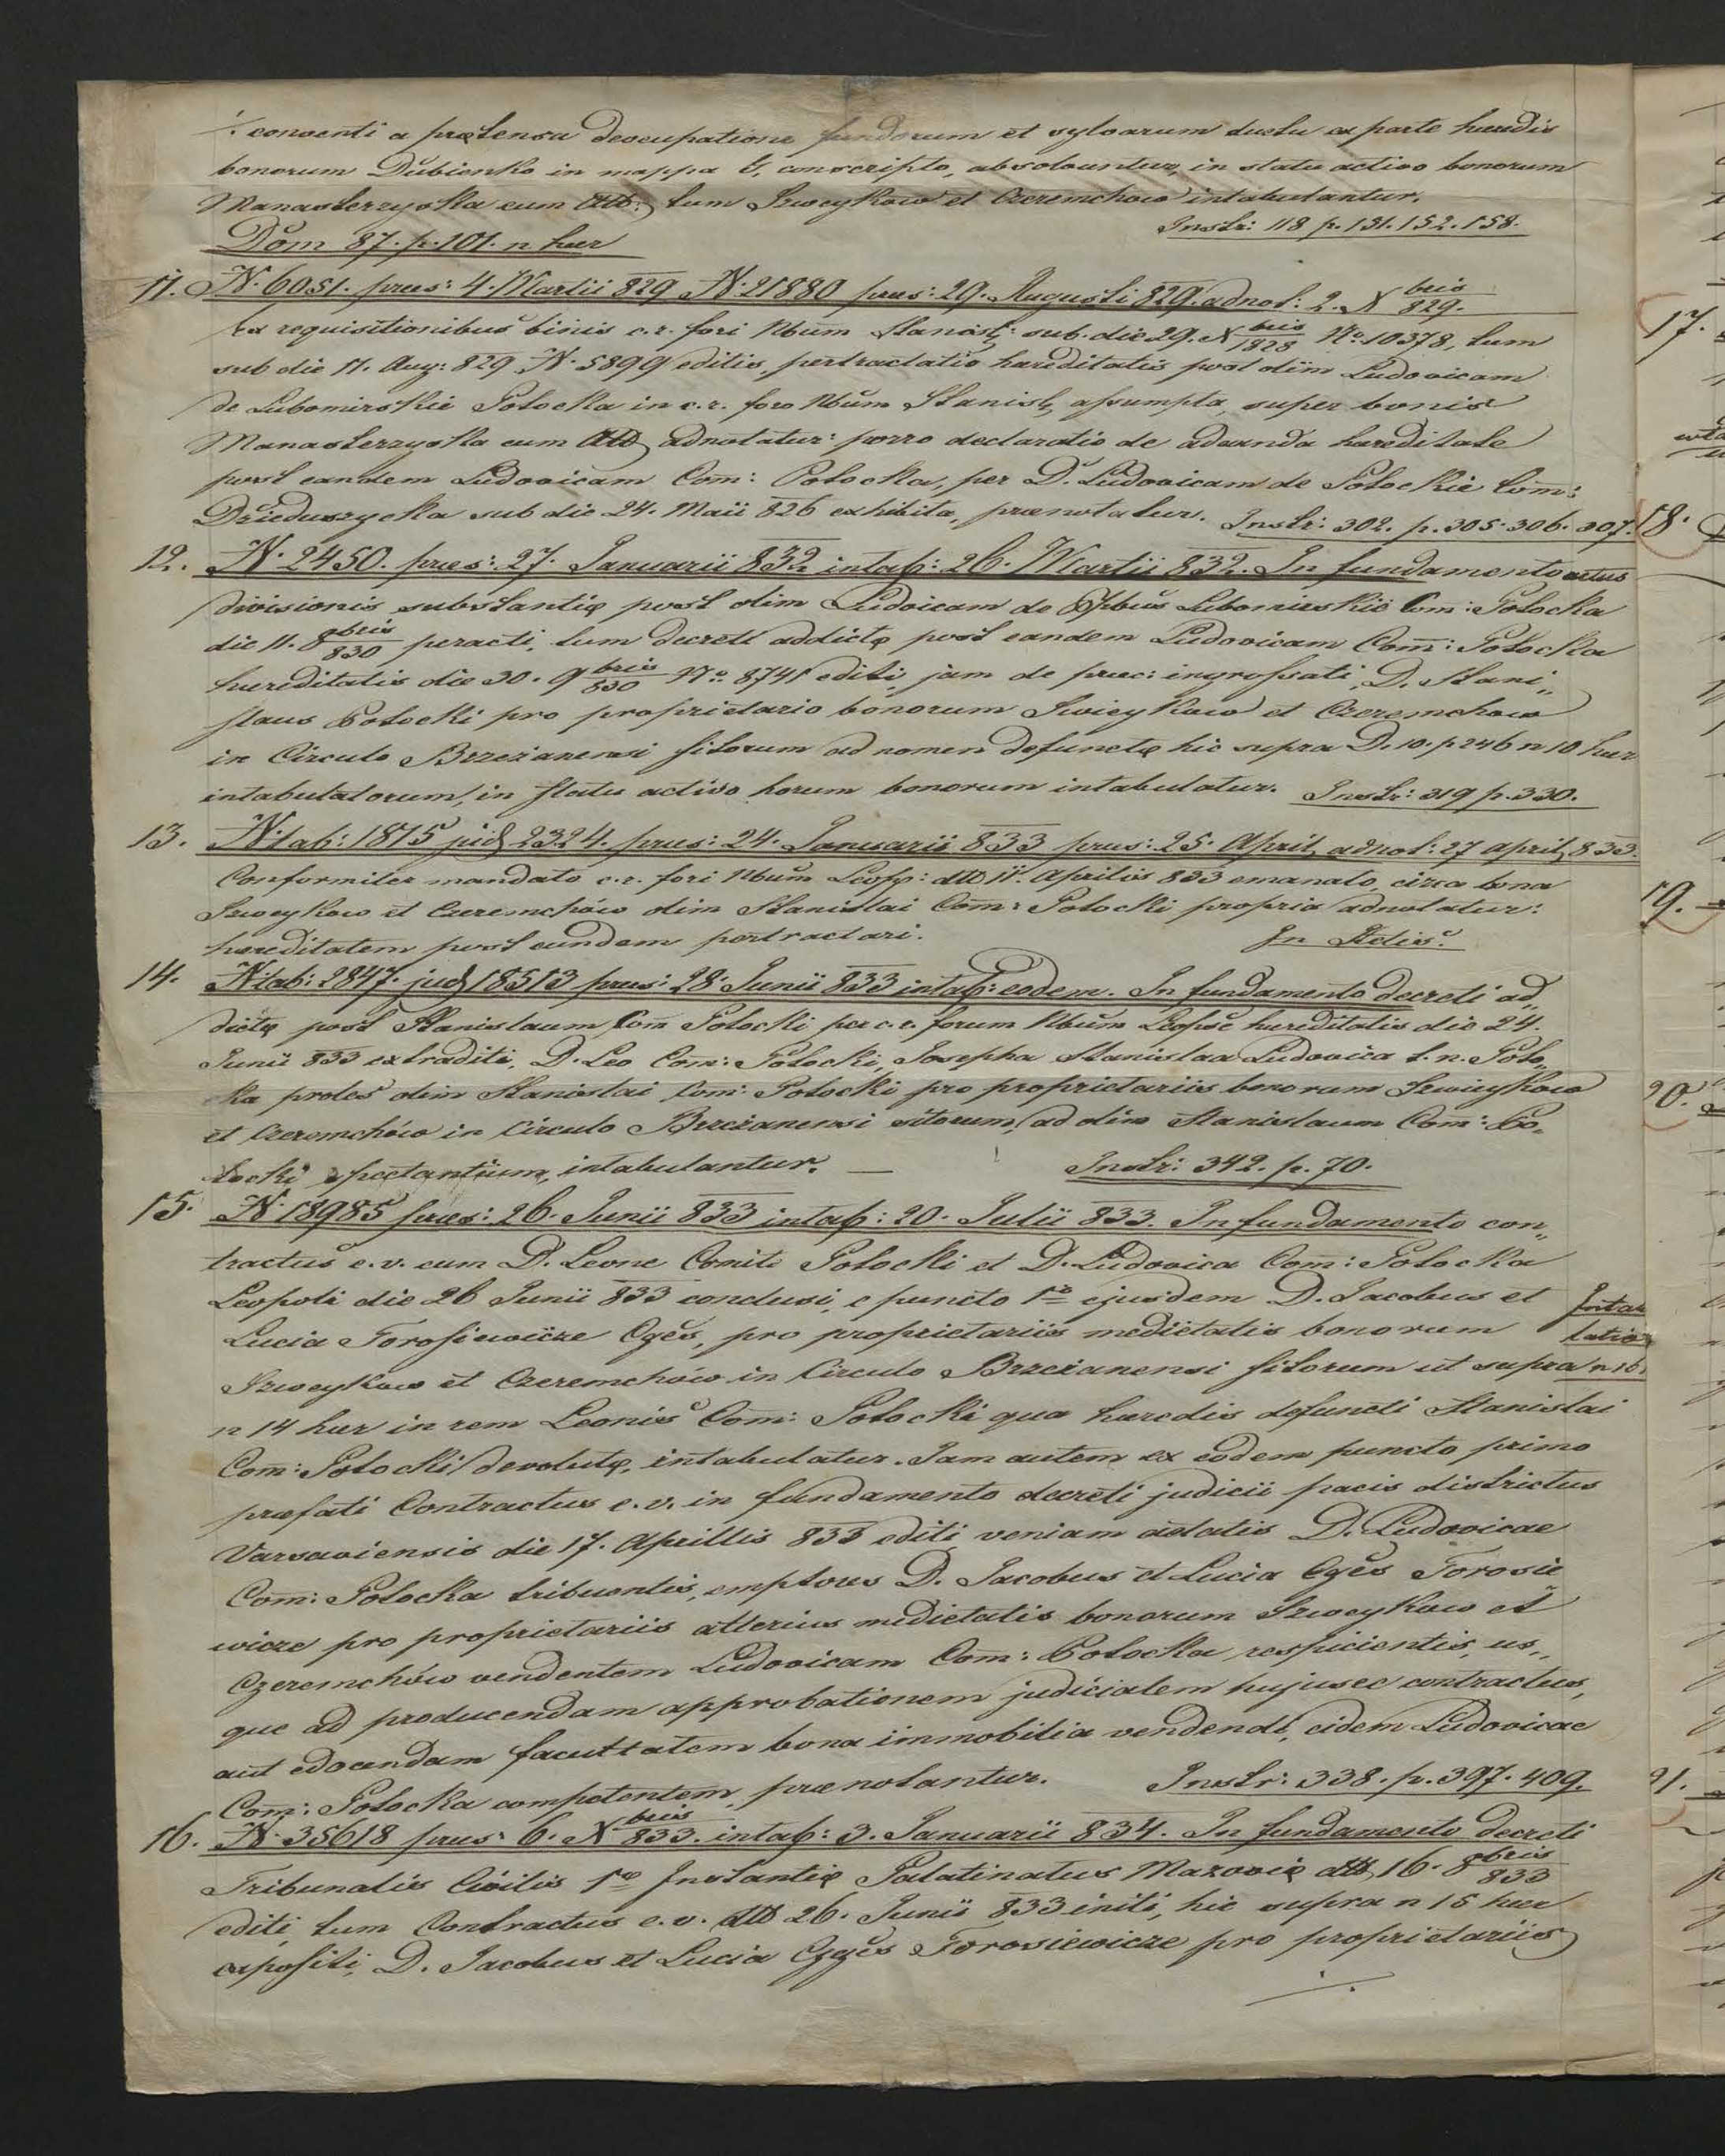 ./. conventi a prætensa deocupatione fundorum et sylvarum ductu ex parte hæredis
bonorum Dubienko in mappa G, conscripto, absolvuntur, in statu activo bonorum
Manasterzyska cum Att: tum Szweykow et Czeremchow intabulantur.
Instr: 118 p. 131. 152. 158.
Dom 87. p. 101. n hær
11. N. 6051. præs: 4. Martii 829 N. 21880 præs: 29. Augusti 829. adnot: 2. X bris 829.
Ex requisitionibus binis c.r. fori Nbium Stanisl: sub. die 29. X bris 1828 No. 10378, tum
sub die 11. Aug: 829 N. 5899 editis, pertractatio hæreditatis post olim Ludovicam
de Lubomirskie Potocka in c.r. foro Nbium Stanisl, assumpta, super bonis
Manasterzyska cum Att adnotatur: porro declaratio de adeunda hæreditate
post eandem Ludovicam Com: Potocka, per D. Ludovicam de Potockie Com:
Dzieduszycka sub die 24. Maii 826 exhibita, prænotatur. Instr: 302. p. 305. 306. 307.
12. N. 2450. præs: 27. Januarii 832 intab: 26. Martii 832. In fundamento actus
divisionis substantię post olim Ludoicam de Ppbus Lubomirskie Com: Potocka
die 11. 8 obris 830 peracti, tum decreti addictę post eandem Ludovicam Com: Potocka
hæreditatis die 30. 9 bris 830 No. 8741 editi, jam de præc: ingrossati, D. Stani„
slaus Potocki pro proprietario bonorum Swieykow et Czeremchow
in Circulo Brzezanensi sitorum ad nomen defunctę hic supra D. 10. p 246 n 10 hær
intabulatorum, in statu activo horum bonorum intabulatur. Instr: 319 p. 330.
13. N. tab: 1875 jud 2324. præs: 24. Januarii 833 præs: 25. April, adnot: 27 april, 833.
Conformiter mandato c.r. fori Nbium Leop: dtto 11. Aprilis 833 emanato, circa bona
Szweykow et Czeremchów olim Stanislai Com: Potocki propria adnotatur:
hæreditatem post eundem pertractari.
In Actis.
14. N. tab: 2847. jud 18513 præs: 28 Junii 833 intab: eodem. In fundamento decreti ad„
dictę post Stanislaum Com Potocki per c.r. forum Nbium Leopse hæreditatis die 24.
Junii 833 extraditi, D. Leo Com: Potocki, Josepha Stanislaa Ludovica t. n. Poto„
cka proles olim Stanislai Com: Potocki pro proprietariis bonorum Szwieykow
et Czeremchów in Circulo Brzezanensi sitorum, ad olim Stanislaum Com: Po„
tocki spectantium, intabulantur. — Instr: 342. p. 70.
15. N. 18985 præs: 26. Junii 833 intab: 20. Julii 833. In fundamento con„
tractus e.v. cum D. Leone Comite Potocki et D. Ludovica Com: Potocka
Leopoli die 26 Junii 833 conclusi, e puncto 1mo ejusdem D. Jacobus et
Lucia Torosiewicze Cges, pro proprietariis medietatis bonorum
Szweykow et Czeremchów in Circulo Brzezanensi sitorum ut supra
Intab
latio
n 16.
n 14 hær in rem Leonis Com: Potocki qua hæredis defuncti Stanislai
Com: Potocki devolutę, intabulatur. Jam autem ex eodem puncto primo
præfati Contractus e.v. in fundamento decreti judicii pacis districtus
Varsaviensis die 17. Aprillis 833 editi veniam ætatis D. Ludovicae
Com: Potocka tribuentis, emptores D. Jacobus et Lucia Cges Torosie
wicze pro proprietariis alterius medietatis bonorum Szweykow et
Czeremchów vendentem Ludovicam Com: Potocka respicientis, us„
que ad producendam approbationem judicialem hujusce contractus,
aut edocendam facultatem bona immobilia vendendi, eidem Ludovicae
Com: Potocka competentem, prænotantur. Instr: 338. p. 397. 409.
16. N. 35618 præs: 6. X bris 833. intab: 3. Januarii 834. In fundamento decreti
Tribunalis Civilis 1mo Instantię Palatinatus Mazovię dtto 16. 8 obris 833
editi, tum Contractus e.v. dtto 26. Junii 833 initi, hic supra n 15 hær
expositi, D. Jacobus et Lucia Czges Torosiewicze pro proprietariis
./.
17.
18.
19.
20.
21.